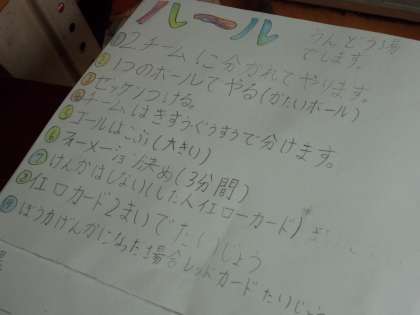 ルール
うんどう場
でします。
① 2チームに分かれてやります。
② 1つのボールでやる(かたいボール)
③ ゼッケンつける。
④ チームはきすうぐうすうで分けます。
⑤ ゴールはこぶ(大きい)
⑥ フォーメーション決め(3分間)
⑦ けんかはしない(した人イエローカード)
⑧ イエロカード2まいでたいじょう
⑨ ぼうかげんかになった場合レッドカードたいじょう